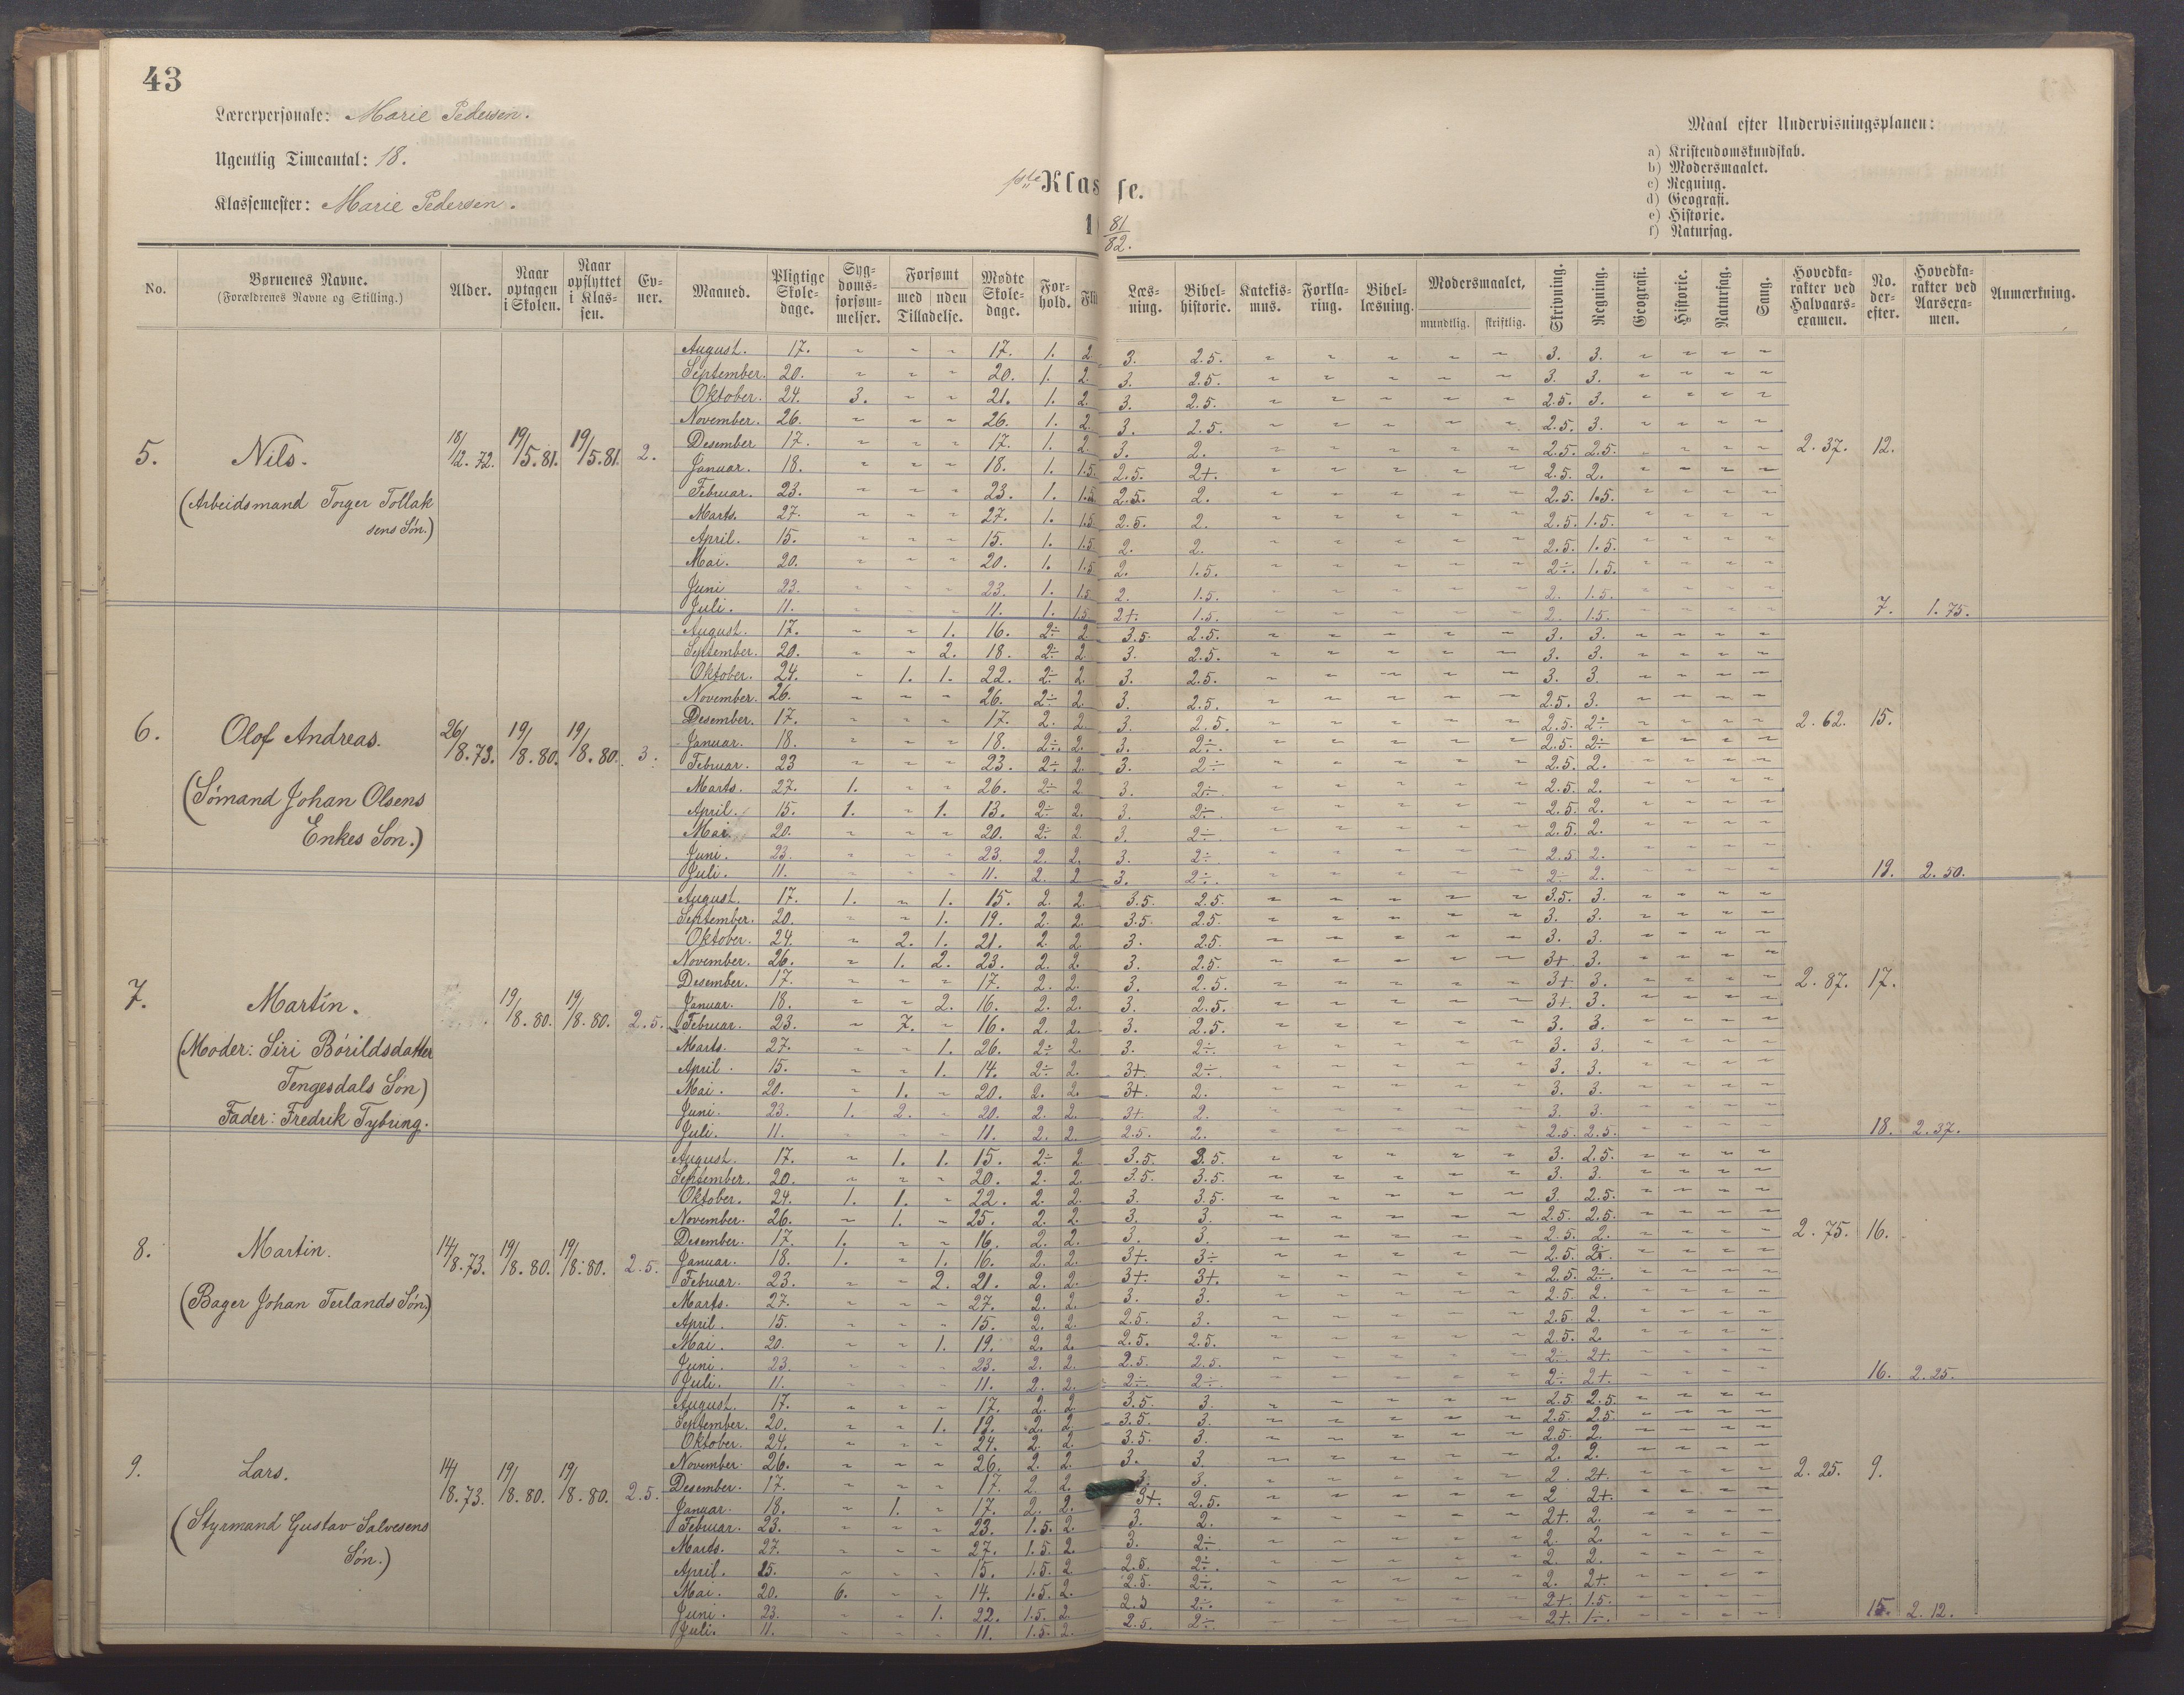 43
Lærerpersonale: Marie Pedersen.
Ugentlig Timeantal: 18.
Klassemester: Marie Pedersen.
1ste Klasse.
81/82.
Maal efter Undervisningsplanen:
a) Kristendomskundskab.
b) Modersmaalet.
c) Regning.
d) Geografi.
e) Historie.
f) Naturfag.
No. Børnenes Navne. (Forældrenes Navne og Stilling.) Alder. Naar optagen i Skolen. Naar opflyttet i Klassen. Evner. Maaned. Pligtige Skoledage. Sygdomsforsømmelser. Forsømt med uden Tilladelse. Mødte Skoledage. Forhold. Læsning. Bibelhistorie. Katekismus. Forklaring. Bibellæsning. Modersmaalet, mundtlig. skriftlig. Skrivning. Regning. Geografi. Historie. Naturfag. Sang. Hovedkarakter ved Halvaarsexamen. No. derefter. Hovedkarakter ved Aarsexamen. Anmærkning.
5. Nils. 18/12.72. 19/5.81. 19/5.81. 2. 2.37. 12.
(Arbeidsmand Torger Tollak
sens Søn.)
August. 17. ~ ~ ~ 17. 1. 2. 3. 2.5. ~ ~ ~ ~ ~ 3. 3. ~ ~ ~ ~
September. 20. ~ ~ ~ 20. 1. 2. 3. 2.5. ~ ~ ~ ~ ~ 3. 3. ~ ~ ~ ~
Oktober. 24. 3. ~ ~ 21. 1. 2. 3. 2.5. ~ ~ ~ ~ ~ 2.5. 3. ~ ~ ~ ~
November. 26. ~ ~ ~ 26. 1. 2. 3. 2.5. ~ ~ ~ ~ ~ 2.5. 3. ~ ~ ~ ~
Desember 17. ~ ~ ~ 17. 1. 2. 3. 2. ~ ~ ~ ~ ~ 2.5. 2.5. ~ ~ ~ ~
Januar. 18. ~ ~ ~ 18. 1. 1.5. 2.5. 2+. ~ ~ ~ ~ ~ 2.5. 2. ~ ~ ~ ~
Februar. 23. ~ ~ ~ 23. 1. 1.5. 2.5. 2. ~ ~ ~ ~ ~ 2.5. 1.5. ~ ~ ~ ~
Marts. 27. ~ ~ ~ 27. 1. 1.5. 2.5. 2. ~ ~ ~ ~ ~ 2.5. 1.5. ~ ~ ~ ~
April. 15. ~ ~ ~ 15. 1. 1.5. 2. 2. ~ ~ ~ ~ ~ 2.5. 1.5. ~ ~ ~ ~
Mai. 20. ~ ~ ~ 20. 1. 1.5. 2. 1.5. ~ ~ ~ ~ ~ 2÷. 1.5. ~ ~ ~ ~
Juni 23. ~ ~ ~ 23. 1. 1.5 2. 1.5. ~ ~ ~ ~ ~ 2. 1.5. ~ ~ ~ ~
Juli. 11. ~ ~ ~ 11. 1. 1.5. 2+. 1.5. ~ ~ ~ ~ ~ 2. 1.5. ~ ~ ~ ~ 7. 1.75.
6. Olof Andreas. 26/8.73. 19/8.80. 19/8.80. 3. 2.62. 15.
(Sømand Johan Olsens
Enkes Søn.)
August. 17. ~ ~ 1. 16. 2÷ 2 3.5. 2.5. ~ ~ ~ ~ ~ 3. 3. ~ ~ ~ ~
September. 20. ~ ~ 2. 18. 2÷ 2. 3. 2.5. ~ ~ ~ ~ ~ 3. 3. ~ ~ ~ ~
Oktober. 24. ~ 1. 1. 22. 2÷ 2. 3. 2.5. ~ ~ ~ ~ ~ 3. 3. ~ ~ ~ ~
November. 26. ~ ~ ~ 26. 2÷ 2. 3. 2.5. ~ ~ ~ ~ ~ 2.5. 3. ~ ~ ~ ~
Desember. 17. ~ ~ ~ 17. 2. 2. 3. 2.5. ~ ~ ~ ~ ~ 2.5. 2÷ ~ ~ ~ ~
Januar. 18. ~ ~ ~ 18. 2÷. 2. 3. 2÷. ~ ~ ~ ~ ~ 2.5. 2÷ ~ ~ ~ ~
Februar. 23 ~ ~ ~ 23. 2÷ 2. 3. 2÷ ~ ~ ~ ~ ~ 2.5. 2. ~ ~ ~ ~
Marts. 27. 1. ~ ~ 26. 2÷ 2. 3. 2÷. ~ ~ ~ ~ ~ 2.5. 2. ~ ~ ~ ~
April. 15. 1. ~ 1. 13. 2÷ 2. 3. 2÷. ~ ~ ~ ~ ~ 2.5. 2. ~ ~ ~ ~
Mai. 20. ~ ~ ~ 20. 2÷ 2. 3. 2÷ ~ ~ ~ ~ ~ 2.5. 2. ~ ~ ~ ~
Juni. 23. ~ ~ ~ 23. 2. 2. 3. 2÷. ~ ~ ~ ~ ~ 2.5 2. ~ ~ ~ ~
Juli. 11. ~ ~ ~ 11. 2. 2 3. 2÷. ~ ~ ~ ~ ~ 2÷ 2. ~ ~ ~ ~ 19. 2.50.
7. Martin. 19/8.80. 19/8.80. 2.5. 2.87. 17.
(Moder: Siri Bórildsdatter
Tengesdals Søn)
Fader: Fredrik Tybring.
August. 17. 1. ~ 1. 15. 2. 2. 3.5. 2.5. ~ ~ ~ ~ ~ 3.5. 3. ~ ~ ~ ~
September. 20. ~ ~ 1. 19. 2. 2. 3.5. 2.5. ~ ~ ~ ~ ~ 3. 3. ~ ~ ~ ~
Oktober. 24. ~ 2. 1. 21. 2. 2 3. 2.5. ~ ~ ~ ~ ~ 3. 3. ~ ~ ~ ~
November. 26. ~ 1. 2. 23. 2. 2. 3. 2.5. ~ ~ ~ ~ ~ 3+ 3. ~ ~ ~ ~
Desember. 17. ~ ~ ~ 17. 2. 2. 3. 2.5. ~ ~ ~ ~ ~ 3+ 3. ~ ~ ~ ~
Januar. 18. ~ ~ 2. 16. 2. 2. 3. 2.5. ~ ~ ~ ~ ~ 3+. 3. ~ ~ ~ ~
Februar. 23. ~ 7. ~ 16. 2. 2. 3. 2.5. ~ ~ ~ ~ ~ 3. 3. ~ ~ ~ ~
Marts. 27. ~ ~ 1. 26. 2÷ 2. 3. 2÷. ~ ~ ~ ~ ~ 3. 3. ~ ~ ~ ~
April. 15. ~ ~ 1. 14. 2÷ 2. 3+ 2÷. ~ ~ ~ ~ ~ 3. 3. ~ ~ ~ ~
Mai. 20. ~ 1. ~ 20. 2. 2. 3+. 2. ~ ~ ~ ~ ~ 3. 3. ~ ~ ~ ~
Juni. 23. 1. 2. ~ 20. 2. 2. 3+ 2. ~ ~ ~ ~ ~ 3. 3. ~ ~ ~ ~
Juli. 11. ~ ~ ~ 11. 2. 2. 2.5. 2. ~ ~ ~ ~ ~ 2.5. 2.5. ~ ~ ~ ~ 18. 2.37.
8. Martin. 14/8.73. 19/8.80. 19/8.80. 2.5. 2.75. 16.
(Bager Johan Terlands Søn.)
August. 17. ~ 1. 1. 15. 2÷ 2. 3.5. 3.5. ~ ~ ~ ~ ~ 3. 2.5. ~ ~ ~ ~
September. 20. ~ ~ ~ 20. 2. 2. 3.5. 3.5. ~ ~ ~ ~ ~ 3. 3. ~ ~ ~ ~
Oktober. 24. 1. 1. ~ 22. 2. 2. 3. 3.5. ~ ~ ~ ~ ~ 3. 2.5. ~ ~ ~ ~
November. 26. ~ 1. ~ 25. 2. 2. 3. 3. ~ ~ ~ ~ ~ 2.5. 2.5. ~ ~ ~ ~
Desember. 17. 1. ~ ~ 16. 2. 2. 3. 3. ~ ~ ~ ~ ~ 2.5. 2. ~ ~ ~ ~
Januar. 18. 1. ~ 1. 16. 2. 2. 3+. 3÷ ~ ~ ~ ~ ~ 2.5. 2÷ ~ ~ ~ ~
Februar. 23. ~ ~ 2. 21. 2. 2. 3+. 3+. ~ ~ ~ ~ ~ 2.5. 2÷. ~ ~ ~ ~
Marts. 27. ~ ~ ~ 27. 2. 2. 3. 3. ~ ~ ~ ~ ~ 2.5 2. ~ ~ ~ ~
April. 15. ~ ~ ~ 15. 2. 2. 2.5. 3. ~ ~ ~ ~ ~ 2.5 2. ~ ~ ~ ~
Mai. 20. ~ ~ 1. 19. 2. 2. 2.5. 2.5. ~ ~ ~ ~ ~ 2.5. 2. ~ ~ ~ ~
Juni. 23. ~ ~ ~ 23. 2. 2. 2.5. 2.5. ~ ~ ~ ~ ~ 2÷. 2+. ~ ~ ~ ~
Juli. 11. ~ ~ ~ 11. 2. 2. 2÷. 2÷. ~ ~ ~ ~ ~ 2÷ 2+. ~ ~ ~ ~ 16. 2.25.
9. Lars. 14/8.73. 19/8.80. 19/8.80. 2.5. 2.25. 9.
(Styrmand Gustav Salvesens
Søn.)
August. 17. ~ ~ ~ 17. 2. 2. 3.5. 3. ~ ~ ~ ~ ~ 2.5 2.5. ~ ~ ~ ~
September. 20. ~ ~ 1. 19. 2. 2. 3.5. 3. ~ ~ ~ ~ ~ 2.5. 2.5. ~ ~ ~ ~
Oktober. 24. ~ ~ ~ 24. 2. 2. 3.5. 3. ~ ~ ~ ~ ~ 2.5. 2. ~ ~ ~ ~
November. 26. ~ ~ ~ 26. 2. 2. 3. 3. ~ ~ ~ ~ ~ 2. 2. ~ ~ ~ ~
Desember. 17. ~ ~ ~ 17. 2. 2. 3. 3. ~ ~ ~ ~ ~ 2 2+. ~ ~ ~ ~
Januar. 18. ~ 1. ~ 17. 2. 2. 3+. 2.5. ~ ~ ~ ~ ~ 2 2+. ~ ~ ~ ~
Februar. 23. ~ ~ ~ 23. 1.5. 2. 3. 2. ~ ~ ~ ~ ~ 2+ 2. ~ ~ ~ ~
Marts. 27. ~ ~ ~ 27. 1.5. 2. 3. 2÷ ~ ~ ~ ~ ~ 2. 2. ~ ~ ~ ~
April. 15. ~ ~ ~ 15. 1.5. 2 2.5. 2÷. ~ ~ ~ ~ ~ 2. 2. ~ ~ ~ ~
Mai. 20. 6. ~ ~ 14. 1.5 2. 2.5. 2÷. ~ ~ ~ ~ ~ 2. 2+. ~ ~ ~ ~
Juni. 23. ~ ~ 1. 22. 1.5. 2 2.5 2÷. ~ ~ ~ ~ ~ 2+. 1.5. ~ ~ ~ ~
Juli. 11. ~ ~ ~ 11. 1.5. 2. 2.5. 2÷ ~ ~ ~ ~ ~ 2+. 1÷. ~ ~ ~ ~ 15. 2.12.